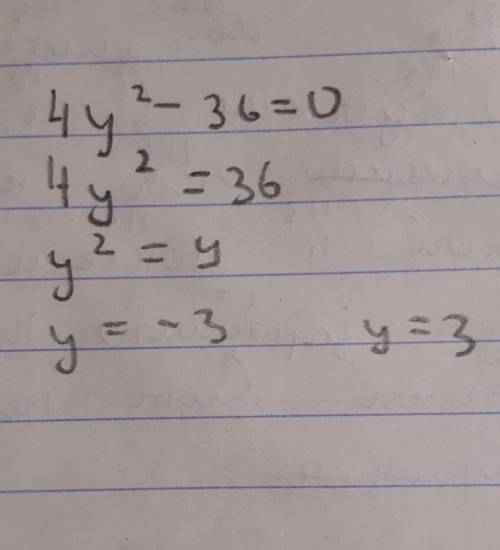 4y² - 36 = 0
4y² = 36
y² = y
y = -3 y = 3